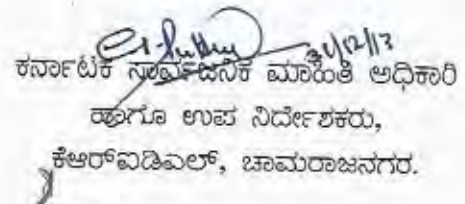 31/12/13
ಕರ್ನಾಟಕ ಸಾರ್ವಜನಿಕ ಮಾಹಿತಿ ಅಧಿಕಾರಿ
ಹಾಗೂ ಉಪ ನಿರ್ದೇಶಕರು,
ಕೆಆರ್‌ಐಡಿಎಲ್, ಚಾಮರಾಜನಗರ.